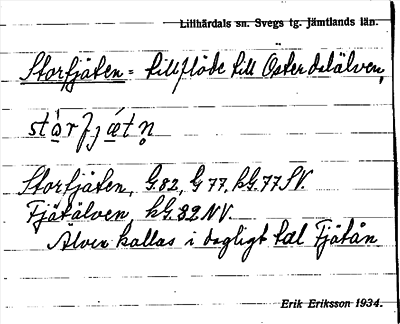 Lillhärdals sn. Svegs tg. Jämtlands län.
Storfjäten = tillflöde till Österdalälven,
Storfjäten, G.82, G 77, kG.77 SV.
Fjätälven, kG.82 NV.
Älven kallas i dagligt tal Fjätån
Erik Eriksson 1934.